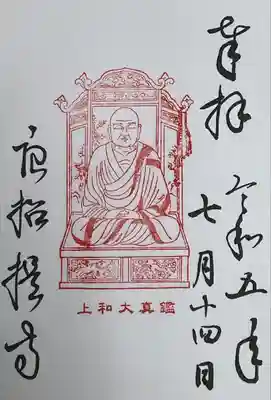 奉拝
令和五年
七月十四日
上和大真鑑
唐招提寺